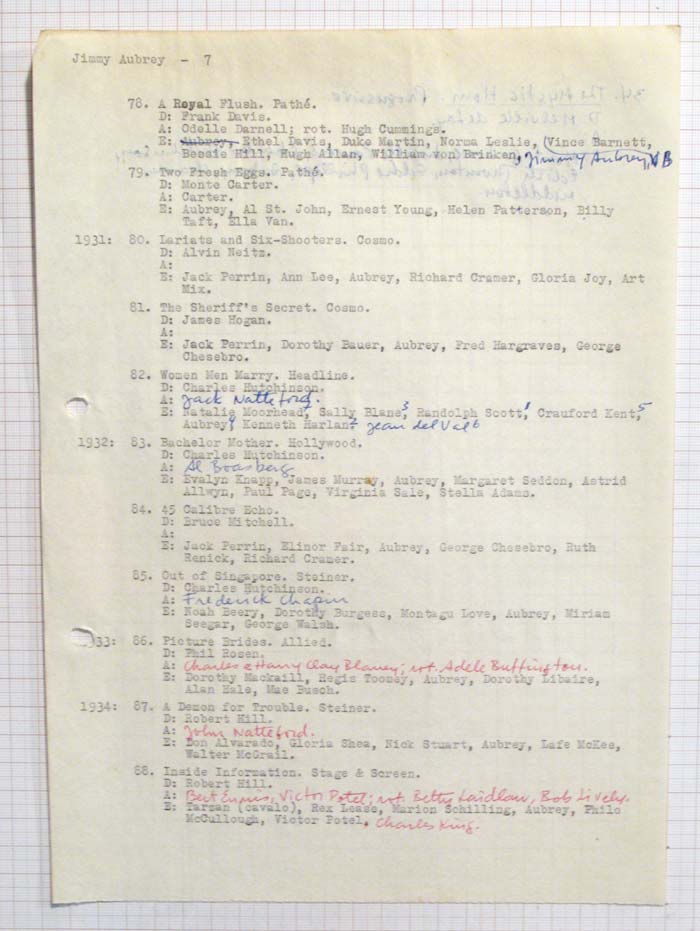 Jimmy Aubrey - 7
78. A Royal Flush. Pathé.
D: Frank Davis.
A: Odelle Darnell; rot. Hugh Cummings.
E: Aubrey, Ethel Davis, Duke Martin, Norma Leslie, (Vince Barnett,
Bessie Hill, Hugh Allan, William von Brinken, Jimmy Aubrey, VB
79. Two Fresh Eggs. Pathé.
D: Monte Carter.
A: Carter.
E: Aubrey, Al St. John, Ernest Young, Helen Patterson, Billy
Taft, Ella Van.
1931: 80. Lariats and Six-Shooters. Cosmo.
D: Alvin Neitz.
A:
E: Jack Perrin, Ann Lee, Aubrey, Richard Cramer, Gloria Joy, Art
Mix.
81. The Sheriff's Secret. Cosmo.
D: James Hogan.
A:
E: Jack Perrin, Dorothy Bauer, Aubrey, Fred Hargraves, George
Chesebro.
82. Women Men Marry. Headline.
D: Charles Hutchinson.
A: Jack Natteford.
E: Natalie Moorhead, Sally Blane,3 Randolph Scott,1 Crauford Kent,5
Aubrey, Kenneth Harlan. Jean del Val6
1932: 83. Bachelor Mother. Hollywood.
D: Charles Hutchinson.
A: Al Boasberg
E: Evalyn Knapp, James Murray, Aubrey, Margaret Seddon, Astrid
Allwyn, Paul Page, Virginia Sale, Stella Adams.
84. 45 Calibre Echo.
D: Bruce Mitchell.
A:
E: Jack Perrin, Elinor Fair, Aubrey, George Chesebro, Ruth
Renick, Richard Cramer.
85. Out of Singapore. Steiner.
D: Charles Hutchinson.
A: Frederick Chapin
E: Noah Beery, Dorothy Burgess, Montagu Love, Aubrey, Miriam
Seegar, George Walsh.
33: 86. Picture Brides. Allied.
D: Phil Rosen.
A: Charles e Harry Clay Blaney; rot. Adele Buffington.
E: Dorothy Mackaill, Regis Toomey, Aubrey, Dorothy Libaire,
Alan Hale, Mae Busch.
1934: 87. A Demon for Trouble. Steiner.
D: Robert Hill.
A: John Natteford.
E: Don Alvarado, Gloria Shea, Nick Stuart, Aubrey, Lafe McKee,
Walter McGrail.
88. Inside Information. Stage & Screen.
D: Robert Hill.
A: Bert Ennis, Victor Potel; rot. Betty Laidlaw, Bob Lively.
E: Tarzan (cavalo), Rex Lease, Marion Schilling, Aubrey, Philo
McCullough, Victor Potel, Charles King.